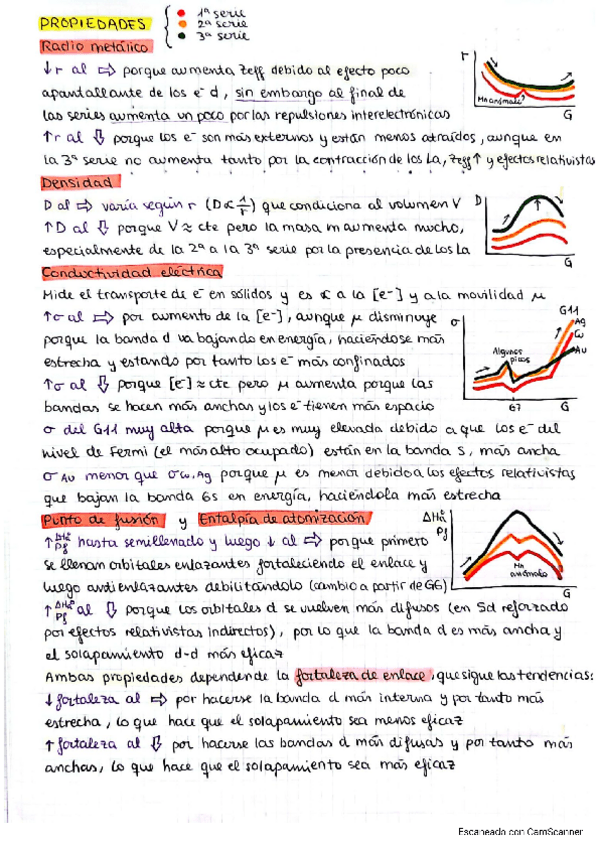 PROPIEDADES
1ª serie
2ª serie
3ª serie
Radio metálico
↓r al ⇨ porque aumenta Zeff debido al efecto poco
apantallante de los e⁻ d, sin embargo al final de
las series aumenta un poco por las repulsiones interelectrónicas
↑r al ⇩ porque los e⁻ son más externos y están menos atraídos, aunque en
la 3ª serie no aumenta tanto por la contracción de los La, Zeff↑ y efectos relativistas
r
Mn anómalo
G
Densidad
D al ⇨ varía según r (D ∝ 1/r) que condiciona al volumen V
↑D al ⇩ porque V ≈ cte pero la masa m aumenta mucho,
especialmente de la 2ª a la 3ª serie por la presencia de los La
D
G
Conductividad eléctrica
Mide el transporte de e⁻ en sólidos y es ∝ a la [e⁻] y a la movilidad μ
↑σ al ⇨ por aumento de la [e⁻], aunque μ disminuye
porque la banda d va bajando en energía, haciéndose más
estrecha y estando por tanto los e⁻ más confinados
↑σ al ⇩ porque [e⁻] ≈ cte pero μ aumenta porque las
bandas se hacen más anchas y los e⁻ tienen más espacio
σ del G11 muy alta porque μ es muy elevada debido a que los e⁻ del
nivel de Fermi (el más alto ocupado) están en la banda s, más ancha
σ Au menor que σ Cu, Ag porque μ es menor debido a los efectos relativistas
que bajan la banda 6s en energía, haciéndola más estrecha
σ
Algunos
picos
G11
Ag
Cu
Au
G7
G
Punto de fusión y Entalpía de atomización
↑ΔHa Pf hasta semillenado y luego ↓ al ⇨ porque primero
se llenan orbitales enlazantes fortaleciendo el enlace y
luego antienlazantes debilitándolo (cambio a partir de G6)
↑ΔHa Pf al ⇩ porque los orbitales d se vuelven más difusos (en 5d reforzado
por efectos relativistas indirectos), por lo que la banda d es más ancha y
el solapamiento d-d más eficaz
ΔHa
Pf
Mn
anómalo
G
Ambas propiedades dependen de la fortaleza de enlace, que sigue las tendencias:
↓ fortaleza al ⇨ por hacerse la banda d más interna y por tanto más
estrecha, lo que hace que el solapamiento sea menos eficaz
↑ fortaleza al ⇩ por hacerse las bandas d más difusas y por tanto más
anchas, lo que hace que el solapamiento sea más eficaz
Escaneado con CamScanner